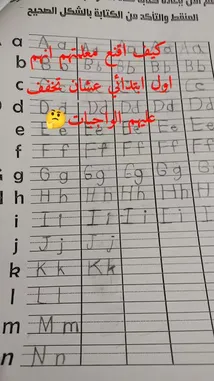 المنقط والتأكد من الكتابة بالشكل الصحيح
كيف اقنع معلمتهم انهم
اول ابتدائي عشان تخفف
عليهم الواجبات 🤔
a A a Aa
b B b Bb Bb Bb
c Cc
d D d Dd Dd Dd
e E e Ee
f F f Ff Ff Ff Ff
g G g Gg Gg Gg G
h H h Hh Hh Hh H
i I i Ii Ii Ii Ii
j J j Jj
k K k Kk
l L l
m M m
n N n